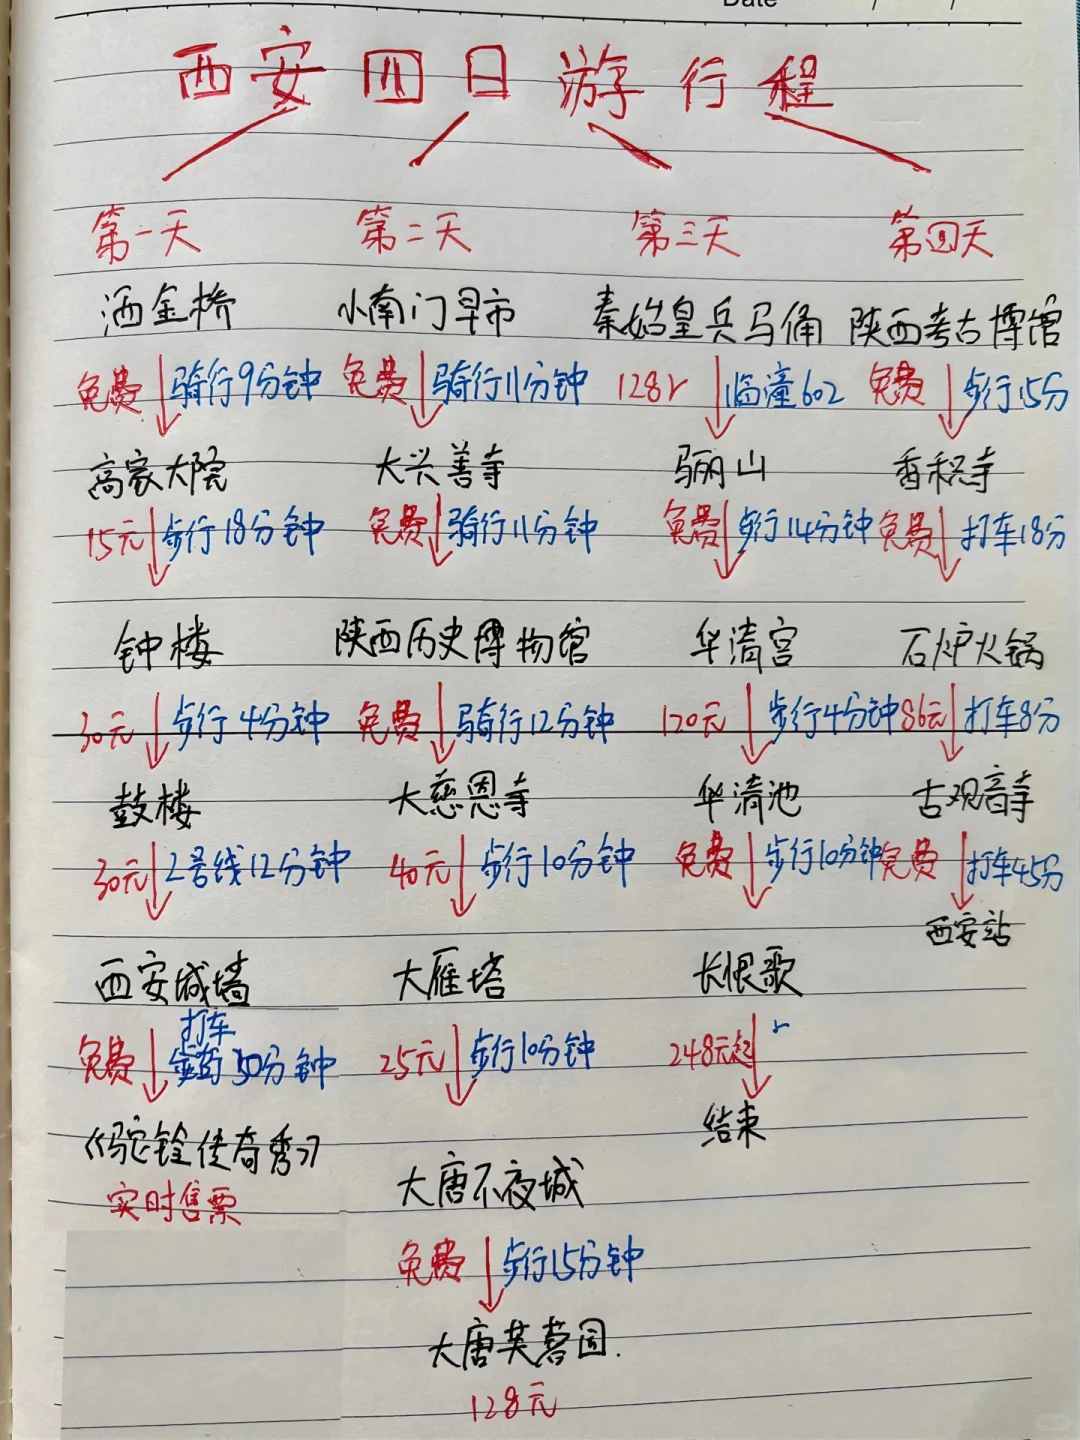 Date / /
西安四日游行程
第一天
洒金桥
免费 骑行9分钟
高家大院
15元 步行18分钟
钟楼
30元 步行4分钟
鼓楼
30元 2号线12分钟
西安城墙
打车
免费 30分钟
《驼铃传奇秀》
实时售票
第二天
小南门早市
免费 骑行11分钟
大兴善寺
免费 骑行11分钟
陕西历史博物馆
免费 骑行12分钟
大慈恩寺
40元 步行10分钟
大雁塔
25元 步行10分钟
大唐不夜城
免费 步行15分钟
大唐芙蓉园.
128元
第三天
秦始皇兵马俑
128r 临潼602
骊山
免费 步行14分钟
华清宫
120元 步行4分钟
华清池
免费 步行10分钟
长恨歌
248元起
结束
第四天
陕西考古博馆
免费 步行15分
香积寺
免费 打车18分
石炉火锅
86元 打车8分
古观音寺
免费 打车45分
西安站